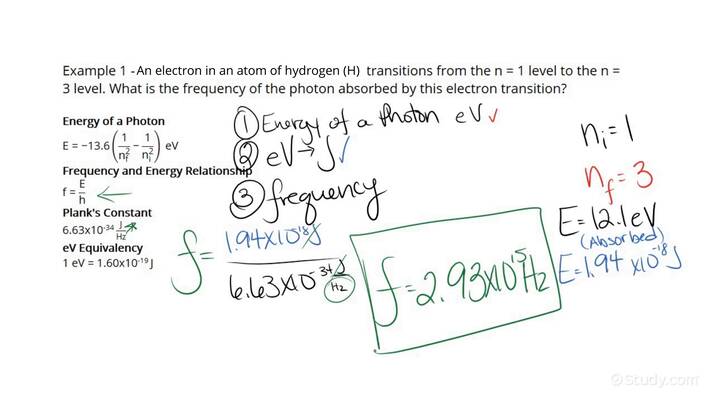 Example 1 - An electron in an atom of hydrogen (H) transitions from the n = 1 level to the n =
3 level. What is the frequency of the photon absorbed by this electron transition?
Energy of a Photon
E = −13.6(1/n_f² − 1/n_i²) eV
Frequency and Energy Relationship
f = E/h
Plank's Constant
6.63x10⁻³⁴ J/Hz
eV Equivalency
1 eV = 1.60x10⁻¹⁹ J
① Energy of a Photon eV ✓
② eV → J ✓
③ frequency
f = 1.94x10⁻¹⁸ J / 6.63x10⁻³⁴ J/Hz
f = 2.93x10¹⁵ Hz
n_i = 1
n_f = 3
E = 12.1 eV
(Absorbed)
E = 1.94 x10⁻¹⁸ J
©Study.com